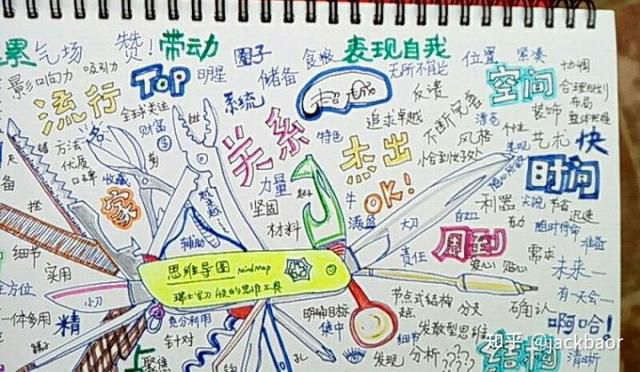 气场
赞!
带动
圈子
食粮
表现自我
位置
紧凑
协调
影响力
吸引力
TOP
明星
储备
无所不能
空间
合理规划
布局
流行
全球关注
系统
反馈
追求卓越
不断完善
装饰
财富
$
关系
特色
杰出
风格
个性
艺术
快
方法
优质
口碑
收藏
家
力量
牛
OK!
恰到好处
时间
坚固
满盘
利器
节省
迅速
辅助
材料
大刀
随时待命
准备
细节
责任
周到
爱心
贴心
需求
未来……
实用
思维导图 mindmap
瑞士军刀般的思维工具
全方位
小刀
有一天会……
一体多用
精
充分利用
明确目标
集中
节点式结构
分支
确认
啊哈!
镊子
针对
发散型思维
聚焦
孔
发现
分析
???
结构
清晰
知乎 @jackbaor